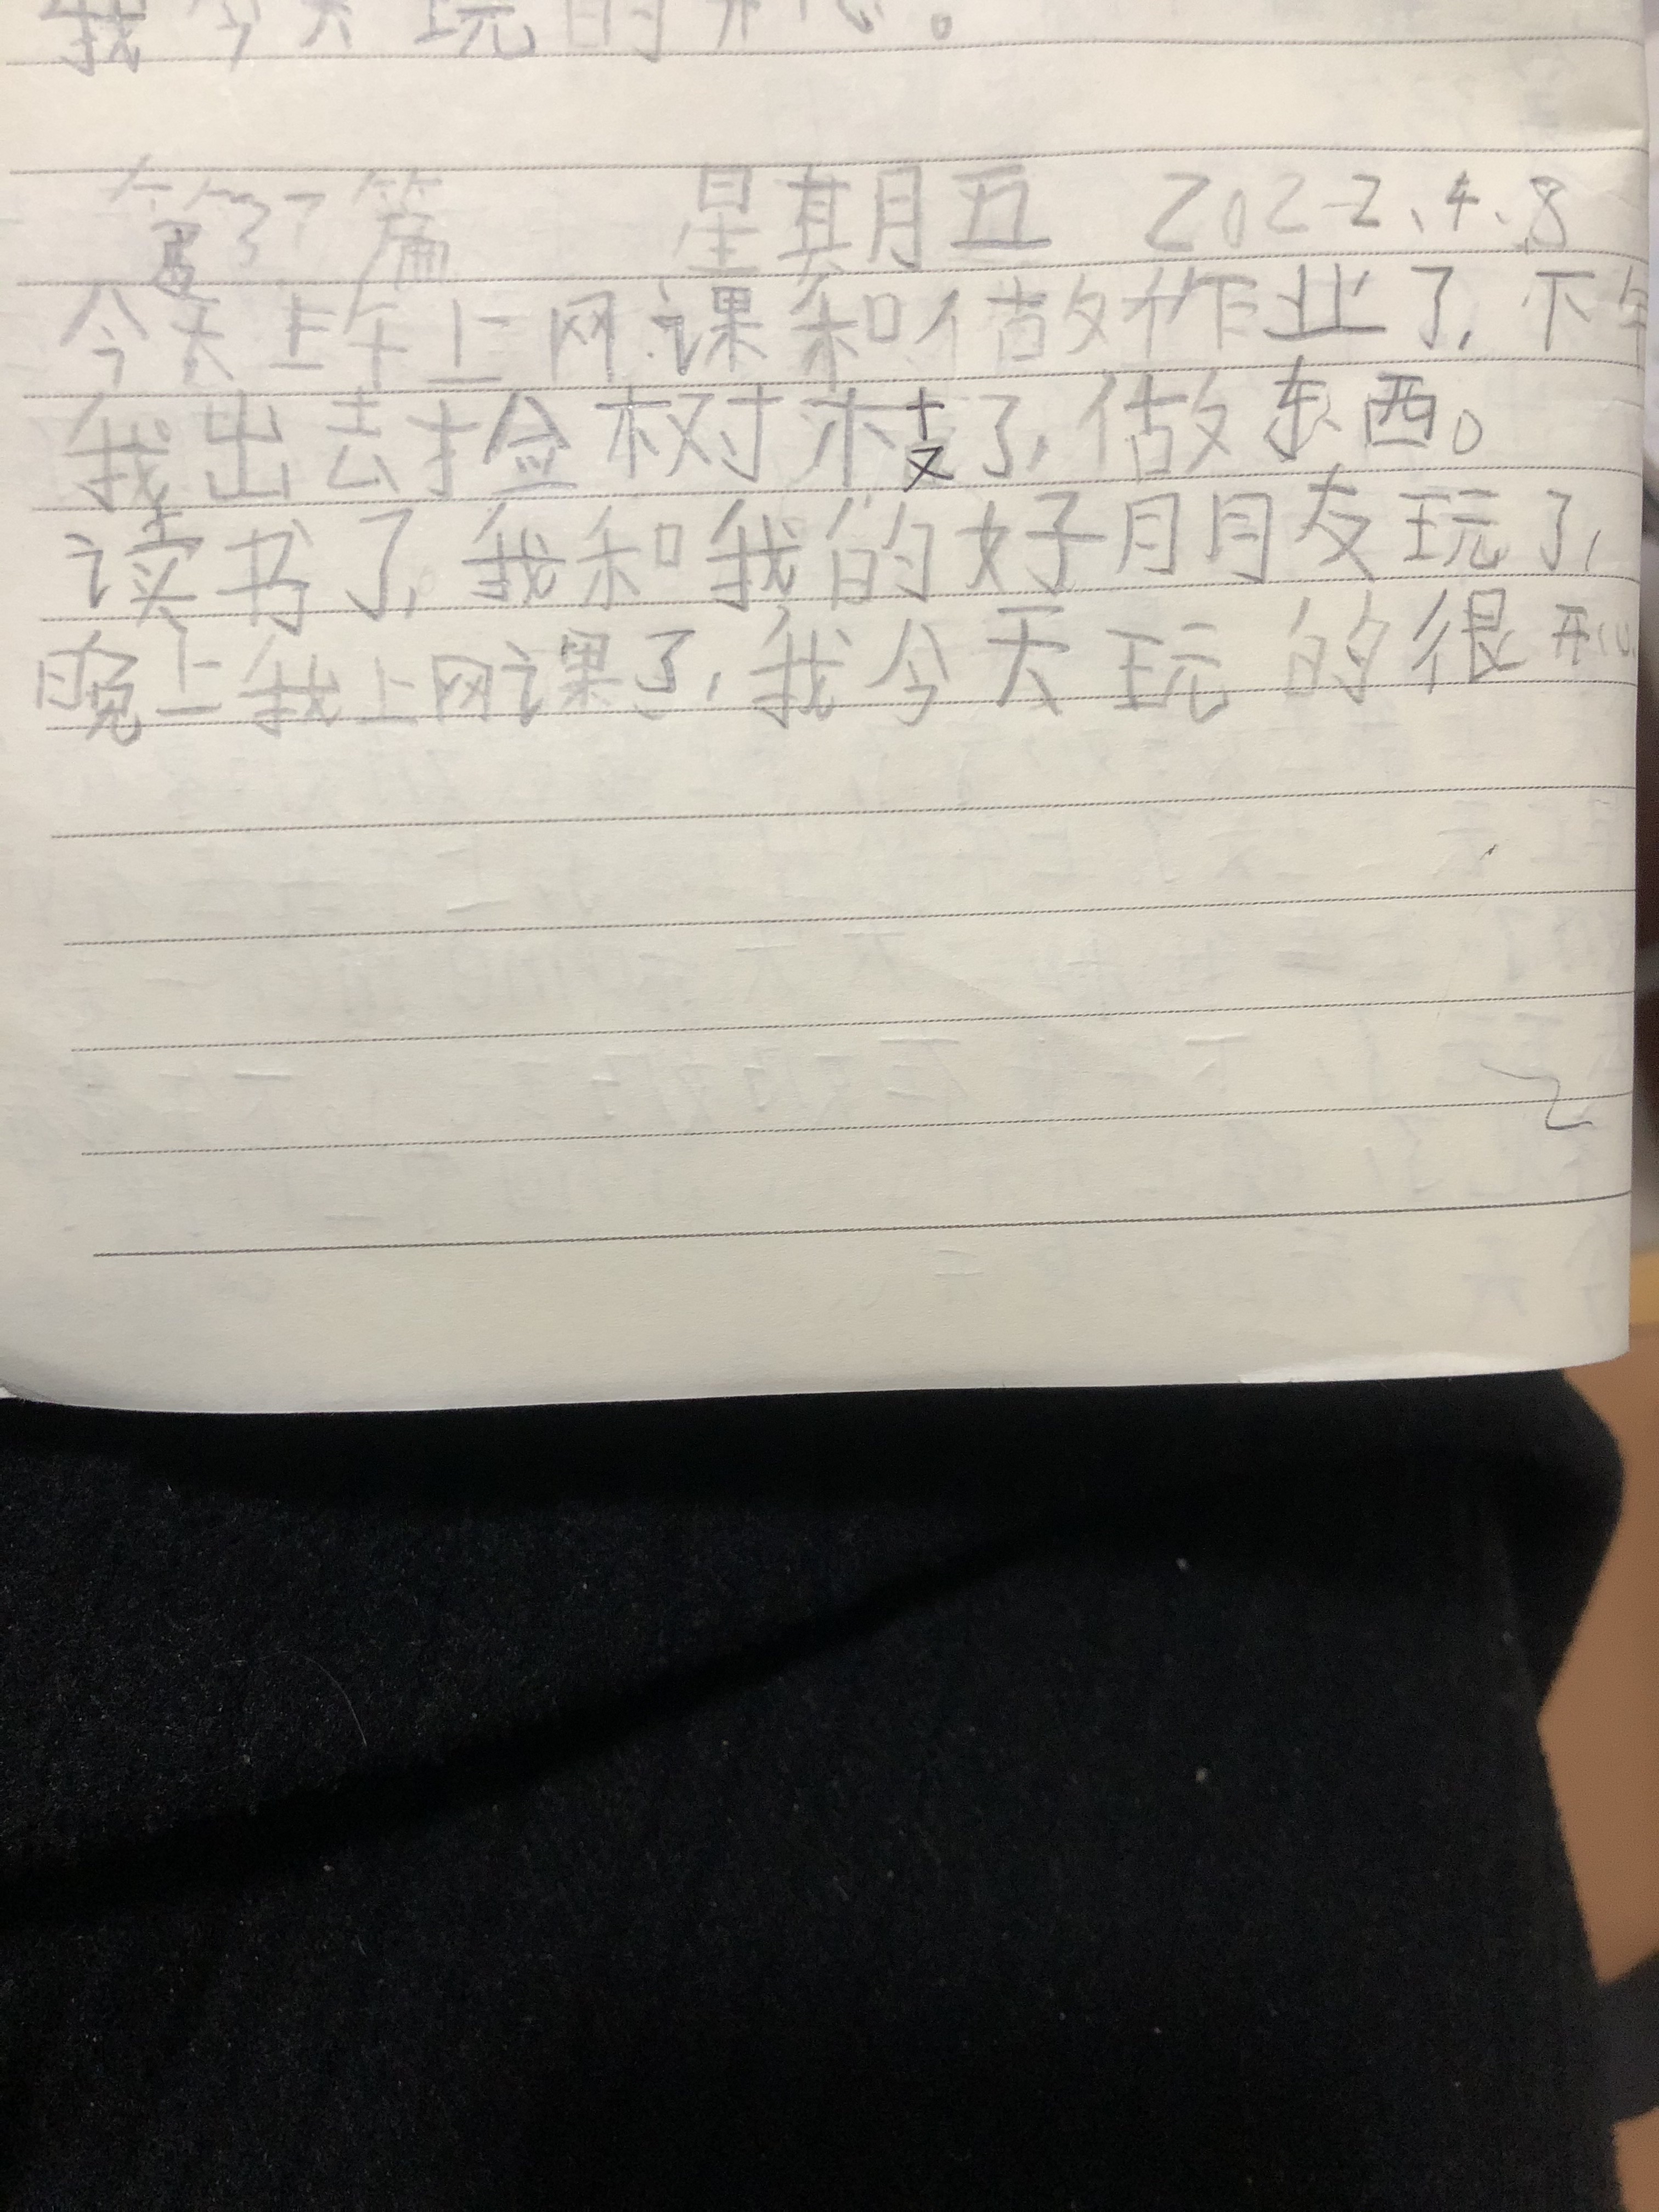 我今天玩的开心。
第37篇 星期五 2022、4、8
今天上午上网课和做作业了，下午
我出去捡树枝了，做东西。
读书了，我和我的好朋友玩了，
晚上我上网课了，我今天玩的很开心